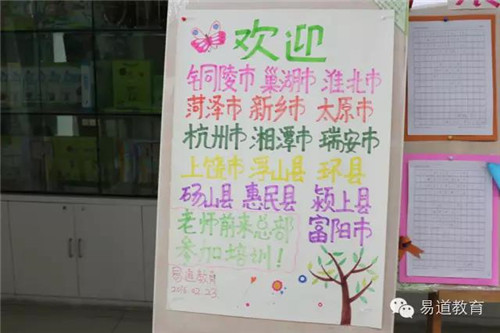 欢迎
铜陵市 巢湖市 淮北市
菏泽市 新乡市 太原市
杭州市 湘潭市 瑞安市
上饶市 浮山县 环县
砀山县 惠民县 颍上县
老师前来总部 富阳市
参加培训！
易道教育
易道教育